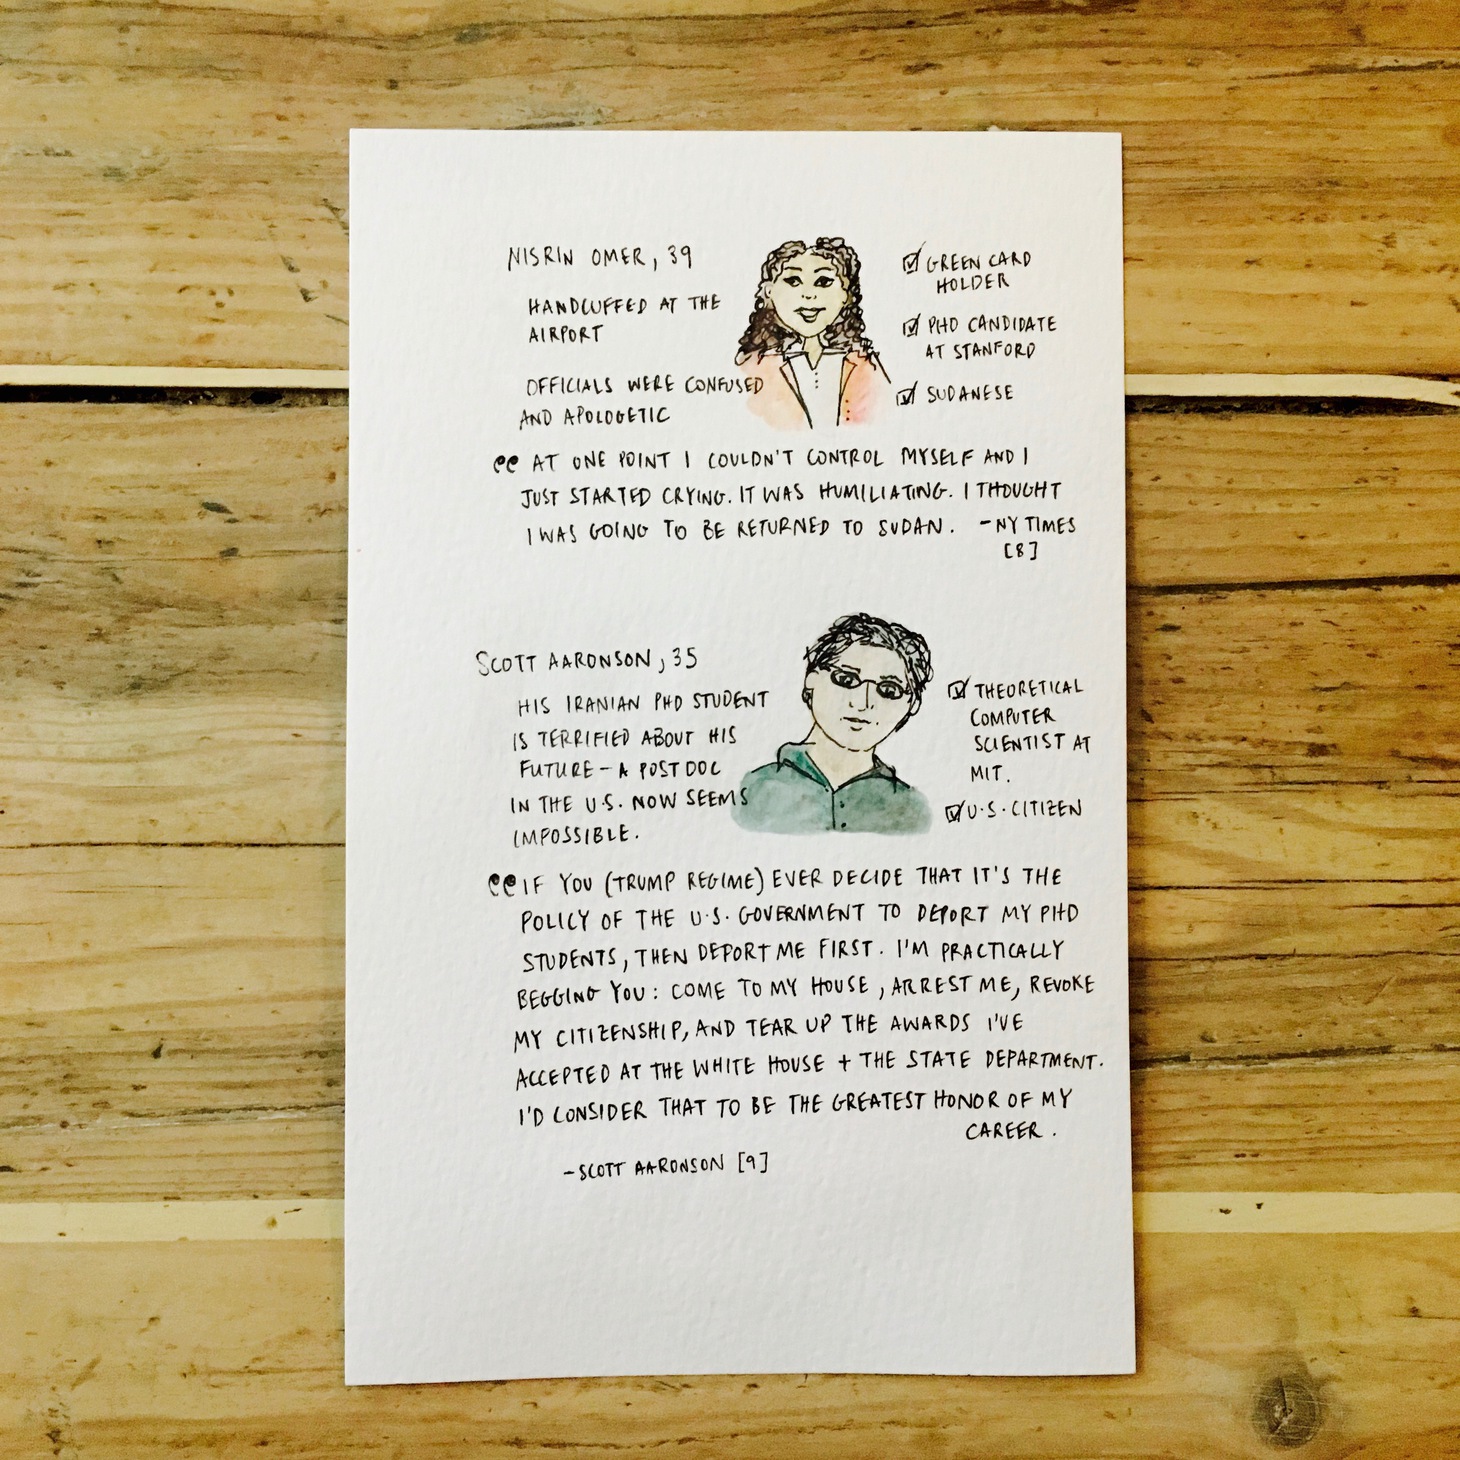 NISRIN OMER, 39
HANDCUFFED AT THE
AIRPORT
OFFICIALS WERE CONFUSED
AND APOLOGETIC
GREEN CARD
HOLDER
PHD CANDIDATE
AT STANFORD
SUDANESE
“ AT ONE POINT I COULDN'T CONTROL MYSELF AND I
JUST STARTED CRYING. IT WAS HUMILIATING. I THOUGHT
I WAS GOING TO BE RETURNED TO SUDAN. -NY TIMES
[8]
SCOTT AARONSON, 35
HIS IRANIAN PHD STUDENT
IS TERRIFIED ABOUT HIS
FUTURE - A POSTDOC
IN THE U.S. NOW SEEMS
IMPOSSIBLE.
THEORETICAL
COMPUTER
SCIENTIST AT
MIT.
U.S. CITIZEN
“ IF YOU (TRUMP REGIME) EVER DECIDE THAT IT'S THE
POLICY OF THE U.S. GOVERNMENT TO DEPORT MY PHD
STUDENTS, THEN DEPORT ME FIRST. I'M PRACTICALLY
BEGGING YOU: COME TO MY HOUSE, ARREST ME, REVOKE
MY CITIZENSHIP, AND TEAR UP THE AWARDS I'VE
ACCEPTED AT THE WHITE HOUSE + THE STATE DEPARTMENT.
I'D CONSIDER THAT TO BE THE GREATEST HONOR OF MY
CAREER.
-SCOTT AARONSON [9]